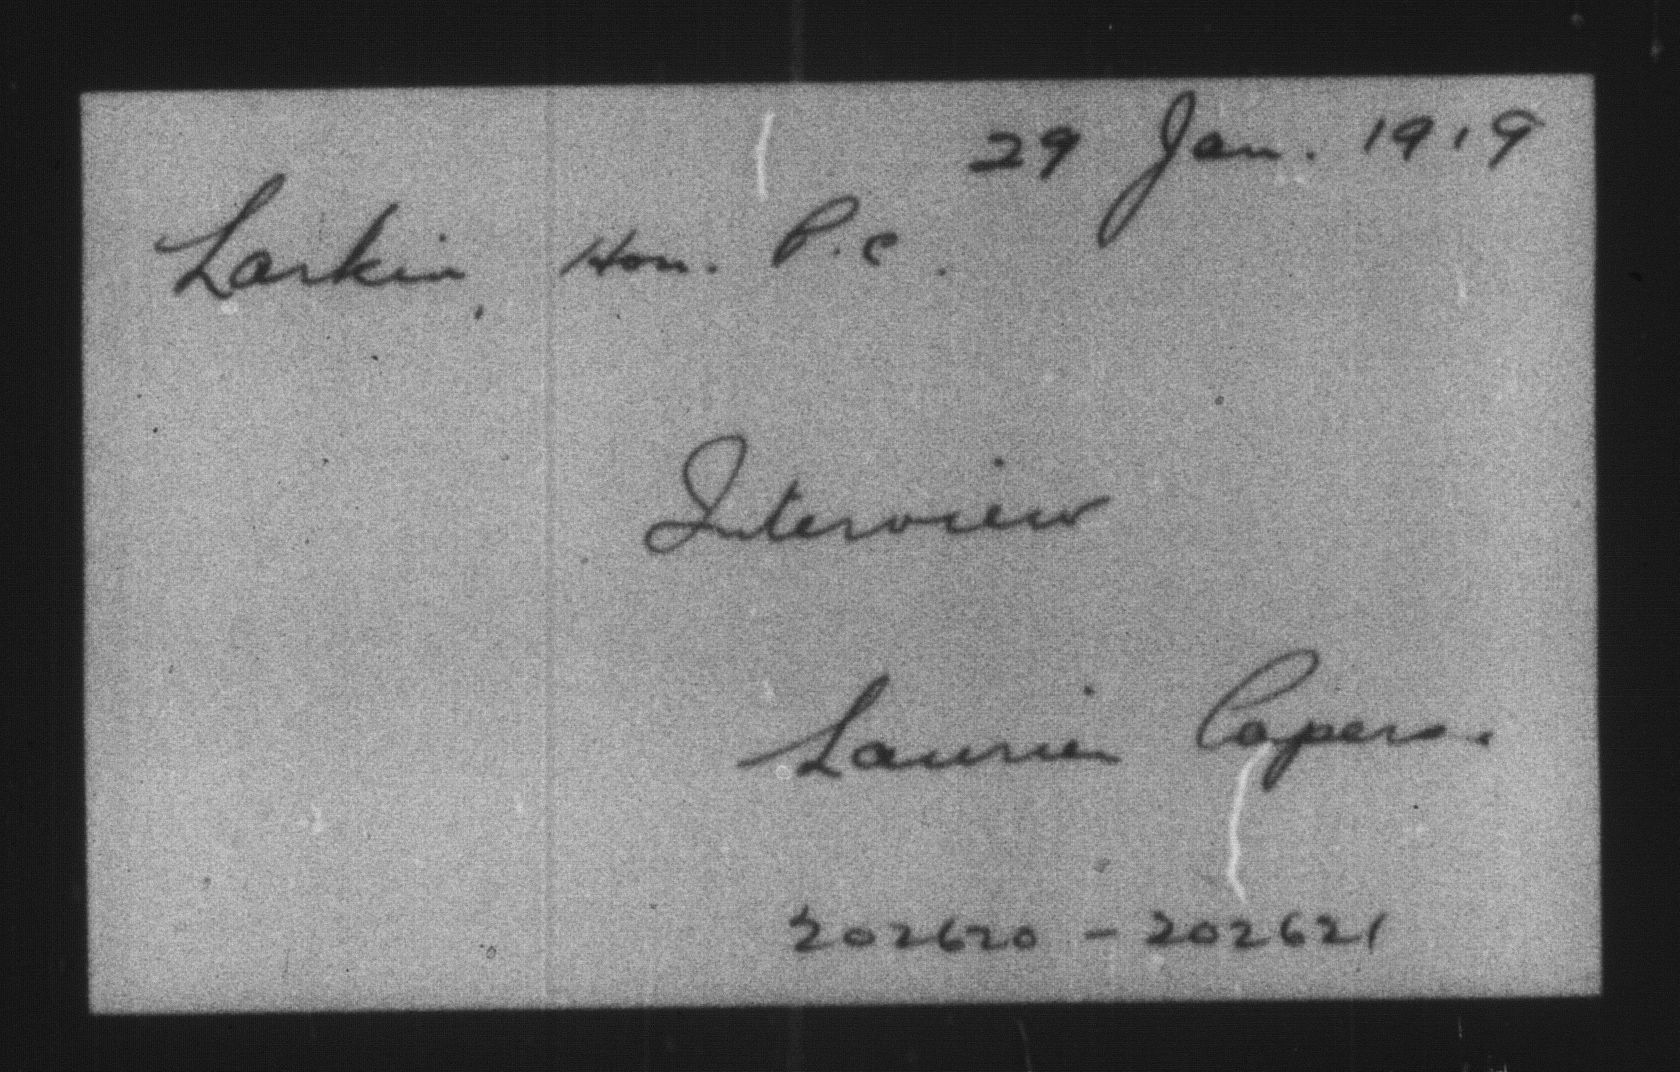 29 Jan. 1919
Larkin, Hon. P.C.
Interview
Laurier Papers.
202620 - 202621